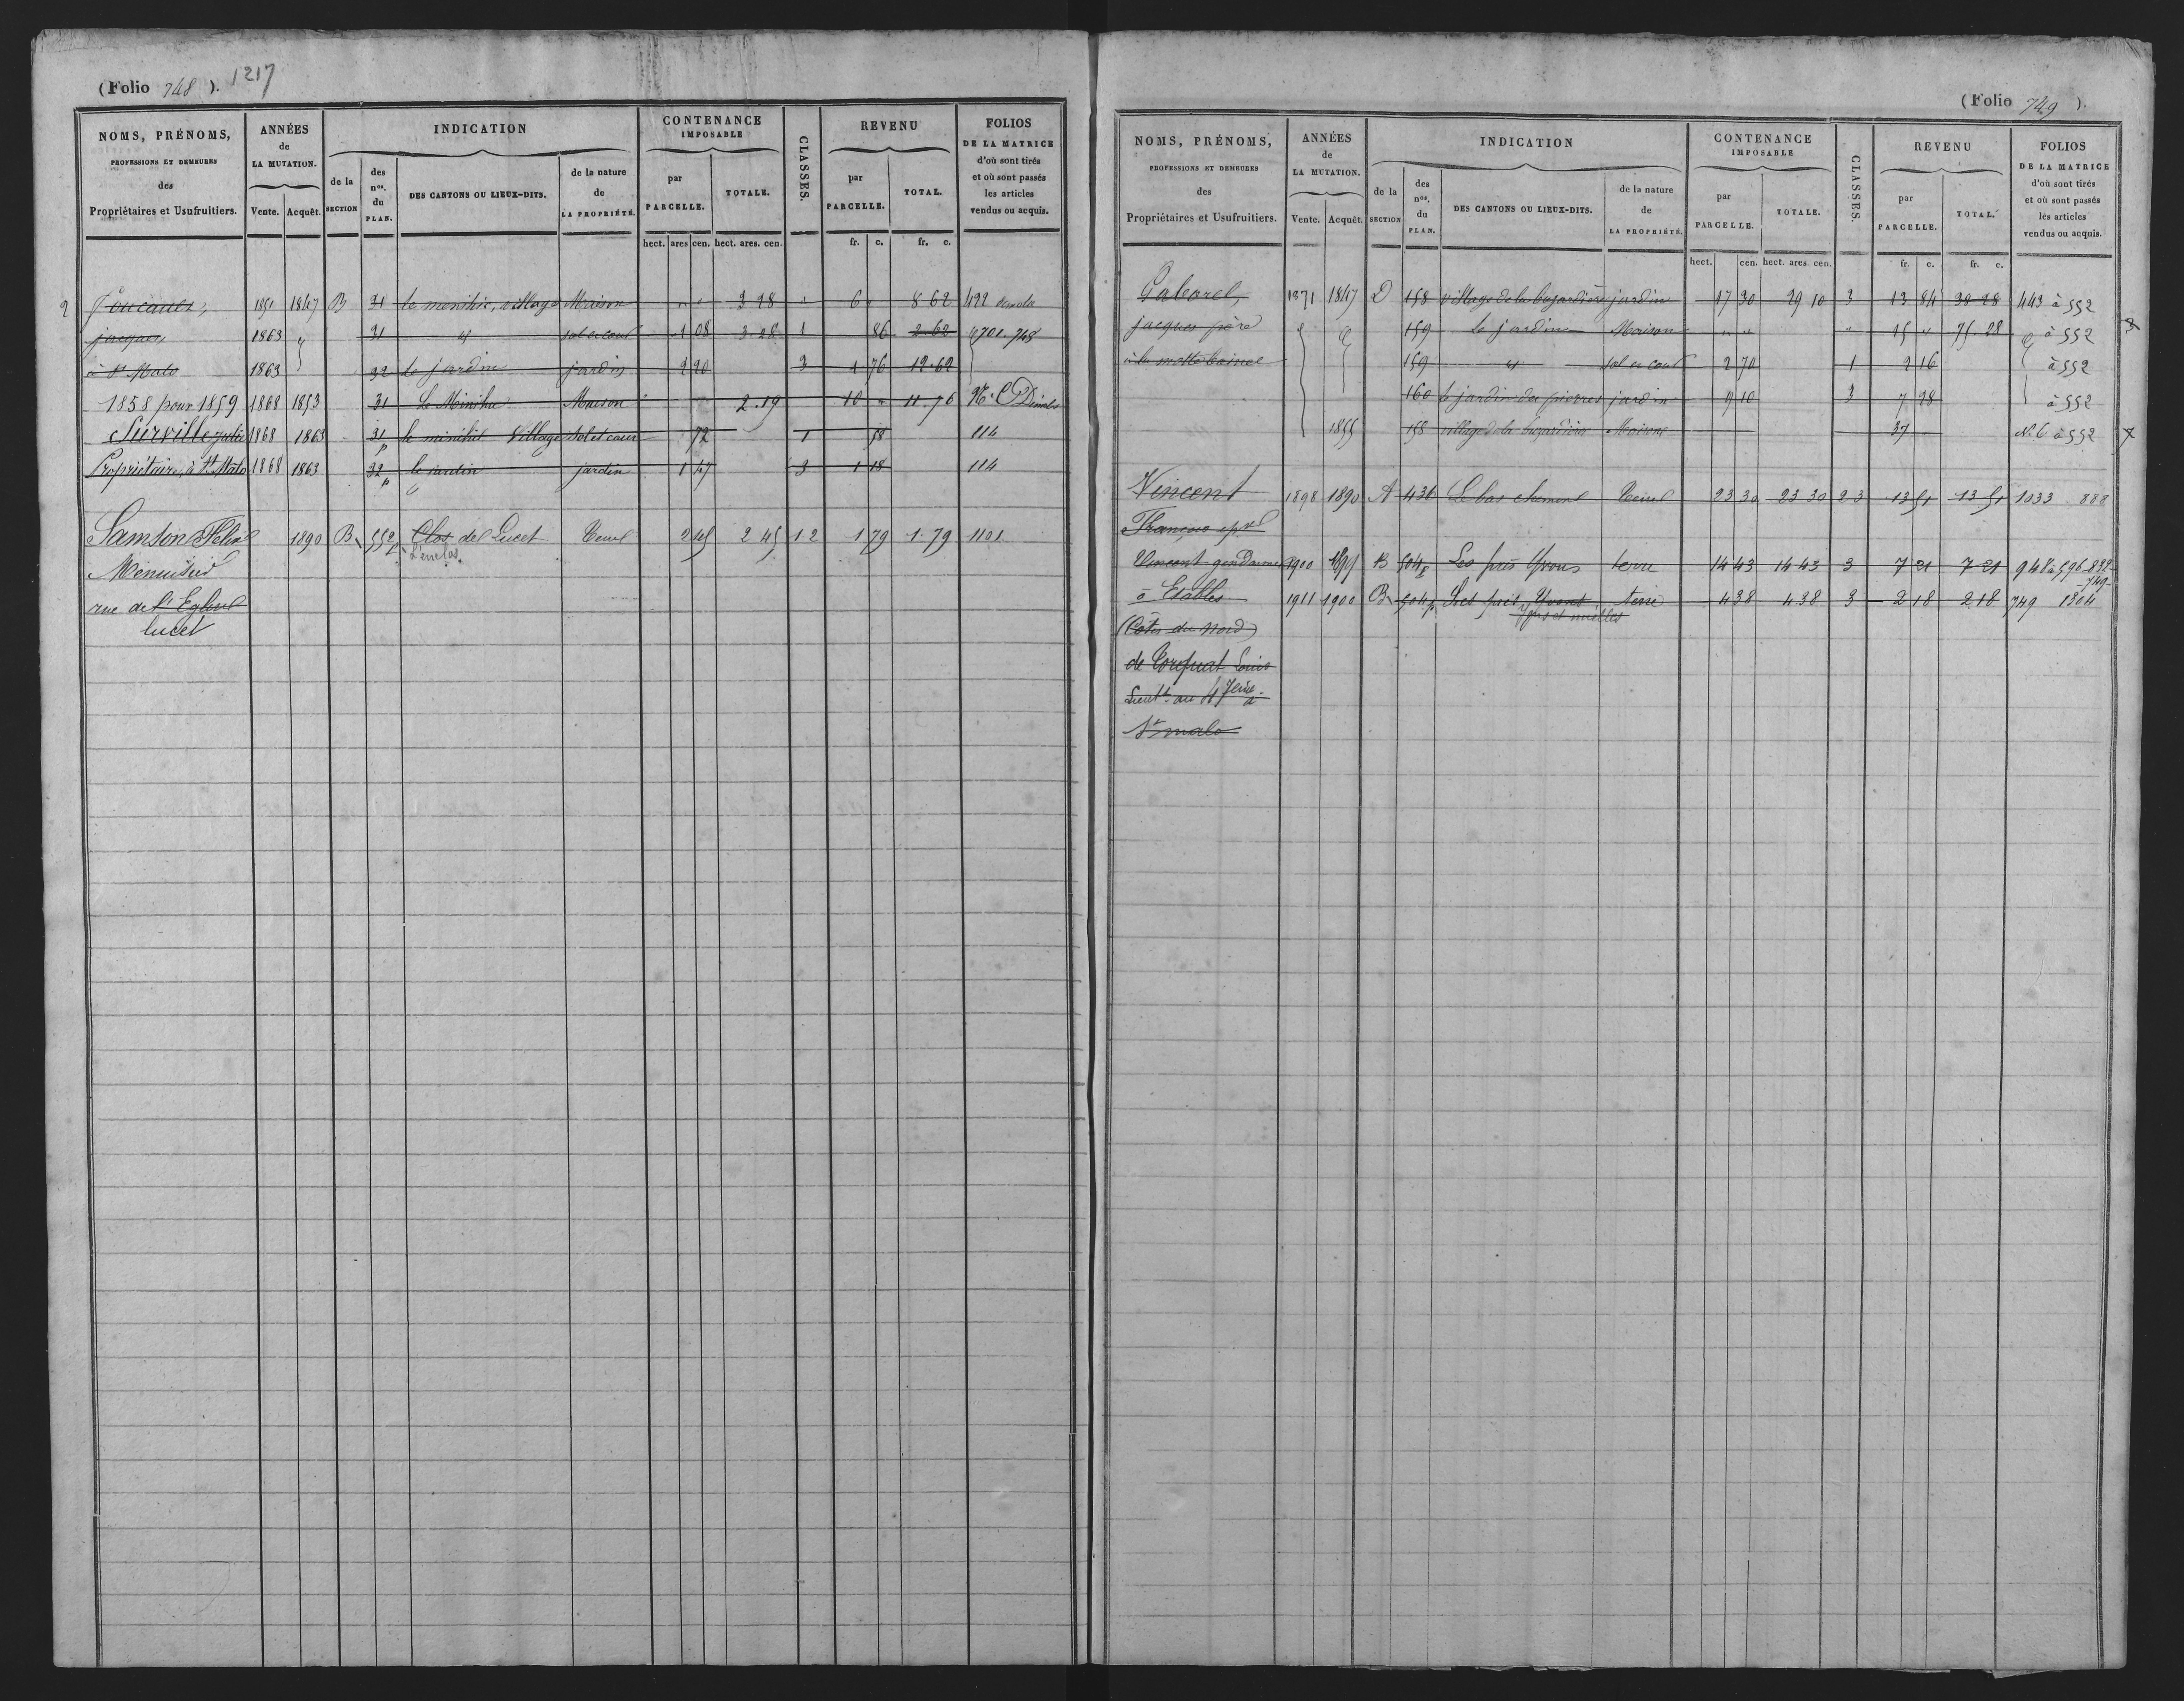 (Folio 748). 1217
NOMS, PRÉNOMS, PROFESSIONS ET DEMEURES des Propriétaires et Usufruitiers.
ANNÉES de LA MUTATION. Vente. Acquêt.
INDICATION de la SECTION des nos. du PLAN. DES CANTONS OU LIEUX-DITS. de la nature de LA PROPRIÉTÉ.
CONTENANCE IMPOSABLE par PARCELLE. TOTALE.
CLASSES.
REVENU par PARCELLE. TOTAL.
FOLIOS DE LA MATRICE d'où sont tirés et où sont passés les articles vendus ou acquis.
hect. ares cen. hect. ares. cen. fr. c. fr. c.
2 Foucault, 1851 1847 B 31 le menihic, village Maison " " 3 28 " 6 " 8 62 422
jacques 1863 " 31 " sol et cour 1 08 3.28 1 86 2.62 701.748
à St Malo 1863 32 le jardin jardin 2 20 3 1 76 12.62
1858 pour 1859 1868 1853 31 Le Minihic Maison 2.19 10 " 11.76
Surville Julie 1868 1863 31p le minihic Village sol et cour 72 1 58 114
Propriétaire, à St Malo 1868 1863 32p le jardin jardin 1 47 3 1 18 114
Samson Félix 1890 B 552p Clos del Lucet Terre 2 45 2 45 1.2 1 79 1.79 1101
Menuisier L'enclos
rue de l'Eglise
lucet
(Folio 749).
NOMS, PRÉNOMS, PROFESSIONS ET DEMEURES des Propriétaires et Usufruitiers.
ANNÉES de LA MUTATION. Vente. Acquêt.
INDICATION de la SECTION des nos. du PLAN. DES CANTONS OU LIEUX-DITS. de la nature de LA PROPRIÉTÉ.
CONTENANCE IMPOSABLE par PARCELLE. TOTALE.
CLASSES.
REVENU par PARCELLE. TOTAL.
FOLIOS DE LA MATRICE d'où sont tirés et où sont passés les articles vendus ou acquis.
hect. cen. hect. ares. cen. fr. c. fr. c.
Gaborel, 1871 1847 D 158 village de la buzardière jardin 17 30 29 10 3 13 84 38 28 443 à 552
jacques père 159 Le jardin Maison " " " 15 " 75.28 à 552
159 " sol et cour 2 70 1 2 16 à 552
160 le jardin des pierres jardin 9 10 3 7 28 à 552
1855 158 village de la buzardière Maison 37 N. C à 552
Vincent 1898 1890 A 436 Le bas chemin Terre 23 30 23 30 2 3 13 51 13 51 1033 888
François
Vincent gendarme 1900 1899 B 504p Les prés Yvons terre 14 43 14 43 3 7 21 7 21 948 à 596.832-749
à Etables 1911 1900 B 504p Les prés Yvons terre 4 38 4 38 3 2 18 2 18 749 1304
(Côtes du Nord)
de Louis
Lieutt au 47
St malo